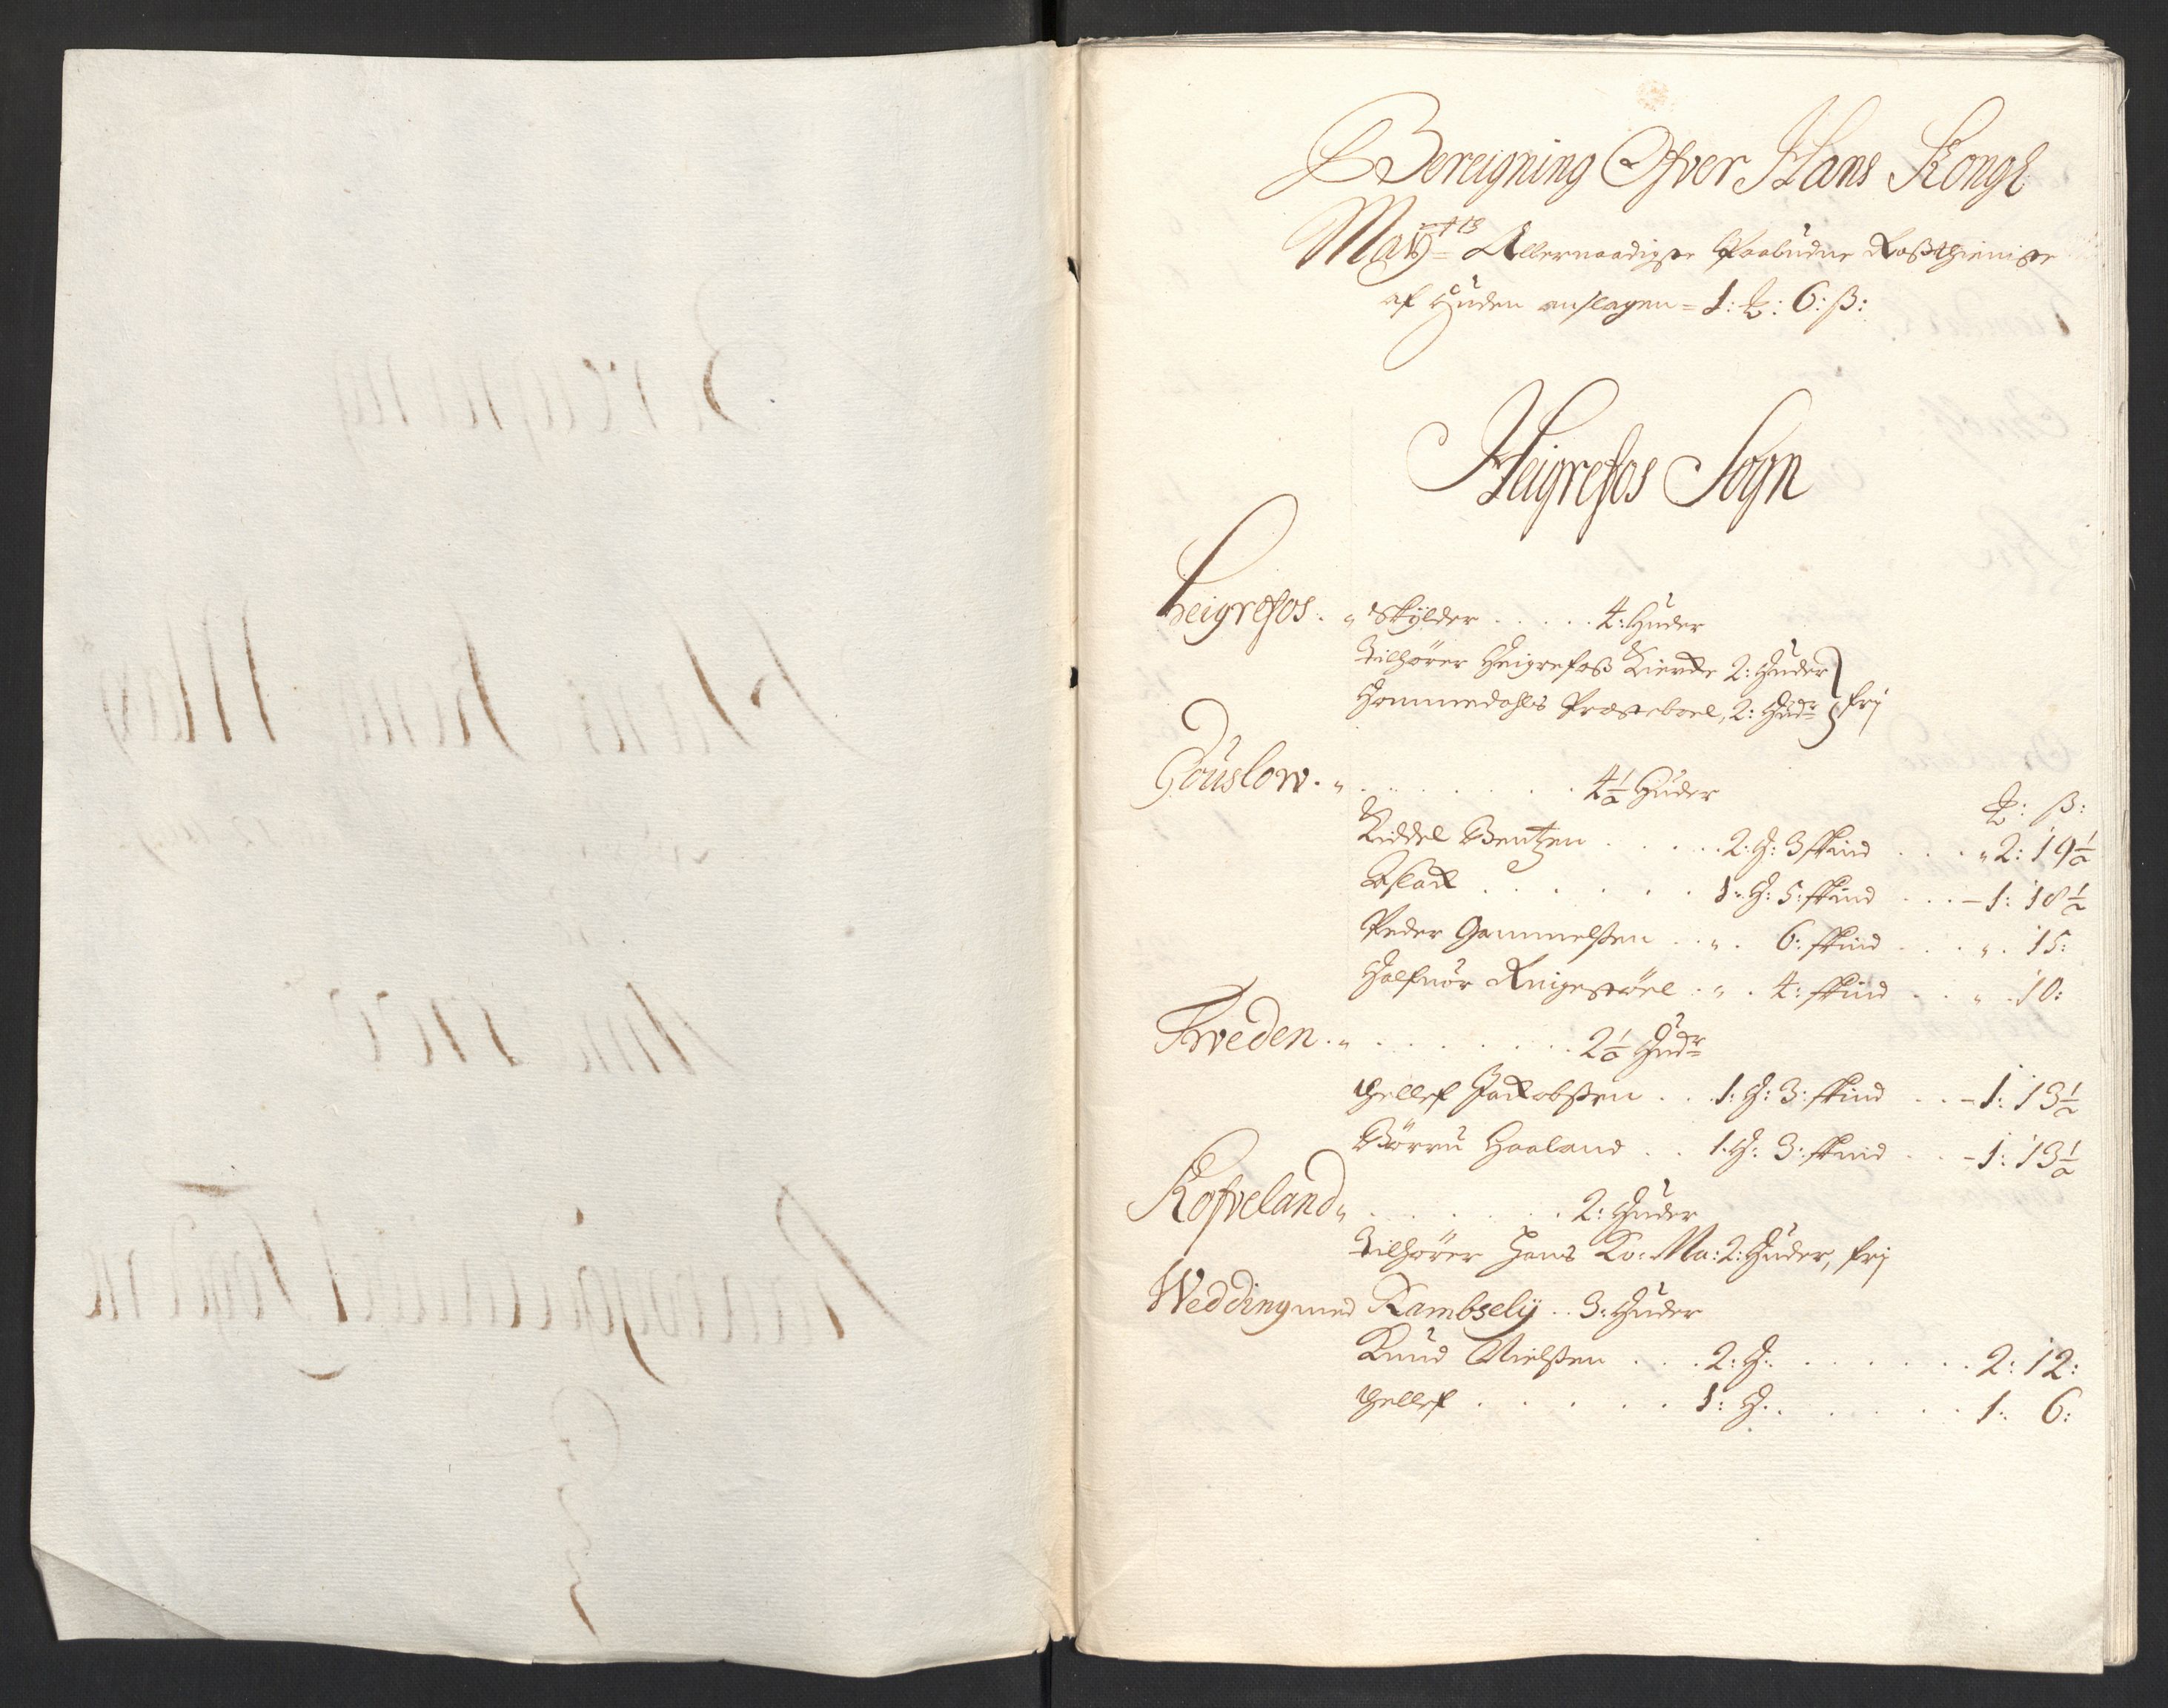 Bereigning Ofver Hans Kongl
Mayᵗˢ Allernaadigste Paabudne Roßthieniste
af Huden anslagen = 1: ₰: 6: ß:
Heigrefos Sogn
Heigrefos. „ Skylder . . . . . 4: Huder
tilhører Heigrefoß Kircke 2: Huder
Hommedahls Præsteboel, 2: Hudr } frj
Gouslow. „ . . . . . . . 4½ Huder
₰: ß:
Kiddel Bentzen . . . . . 2: H: 3 skind . . . „ 2: 19½
Aslack . . . . . . . 1: H: 5: skind . . . – 1: 18½
Peder Gammelßen . . „ . 6: skind . . . „ . 15:
Halfuor Knigestøel . „ . 4: skind . . „ . 10:
Tveden . „ . . . . . . . . 2½ Hudr
Thellef Jackobßen . . 1: H: 3: skind . . – 1: 13½
Børru Haaland . . 1. H: 3: skind . . – 1: 13½
Kofveland „ . . . . . . . 2: Huder
tilhører Hans Ko: Ma: 2: Huder, frj
Wedding med Rambselÿ . . 3: Huder
Knud Nielßen . . . 2: H: . . . . . . 2: 12:
Thellef . . . . . . 1: H. . . . . . . 1: 6: